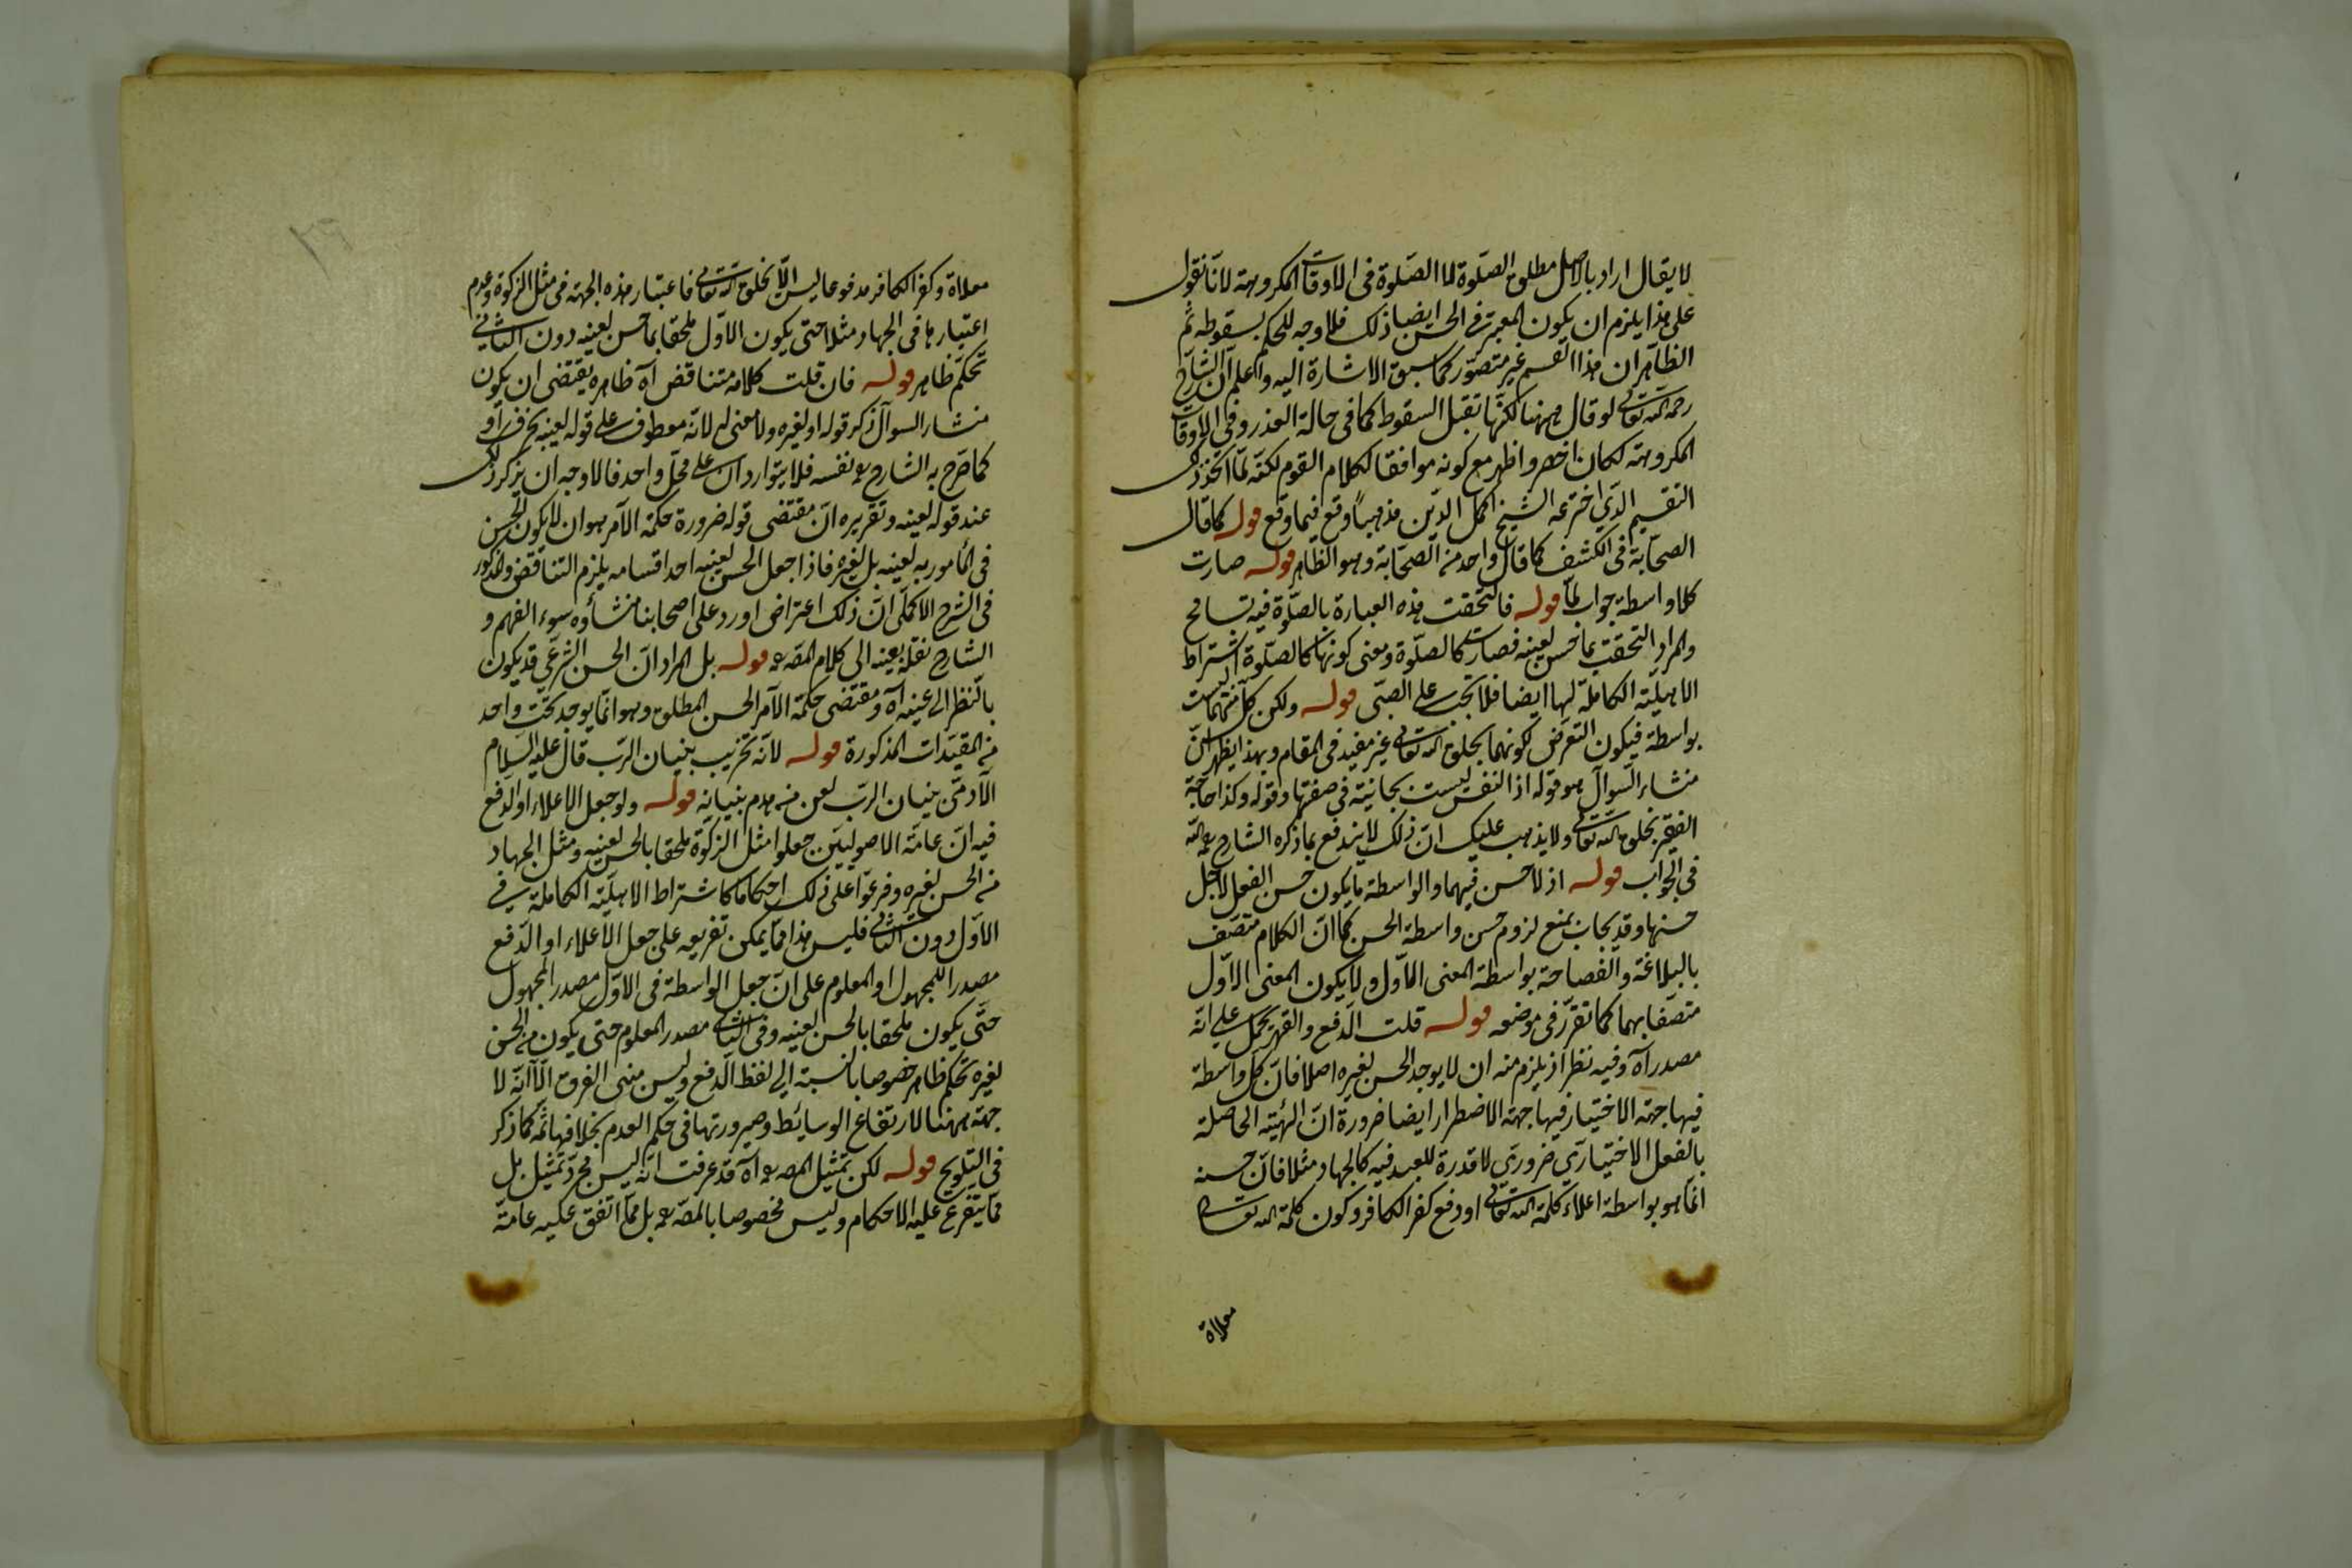 لا يقال اراد بالاصل مطلق الصلوة لا الصلوة فى الاوقات المكروهة لانا نقول
على هذا يلزم ان يكون المعتبر فى الحسن ايضا ذلك فلا وجه للحكم بسقوطه ثم
الظاهر ان هذا القسم غير متصور كما سبق الاشارة اليه واعلم ان الشارح
رحمه الله تعالى لو قال ههنا لكنها تقبل السقوط كما فى حالة العذر وفى الاوقات
المكروهة لكان اخصر واظهر مع كونه موافقا لكلام القوم لكنه لما اتخذ ذلك
التقسيم الذى اخترعه الشيخ اكمل الدين مذهبا وقع فيما وقع قوله كما قال
الصحابة فى الكشف كما قال واحد من الصحابة وهو الظاهر قوله صارت
كلا واسطة جواب لما قوله فالتحقت هذه العبارة بالصلوة فيه تسامح
والمراد التحقت بما حسن لعينه فصارت كالصلوة ومعنى كونها كالصلوة اشتراط
الاهلية الكاملة لها ايضا فلا تجب على الصبى قوله ولكن كل منهما ليست
بواسطة فيكون التعرض لكونهما بخلق الله تعالى غير مفيد فى المقام وبهذا يظهر ان
منشاء السوال هو قوله اذ النفس ليست بجانية فى صفتها وقوله وكذا حاجة
الفقير بخلق الله تعالى ولا يذهب عليك ان ذلك لا يندفع بما ذكره الشارح رحمه الله
فى الجواب قوله اذ لا حسن فيهما والواسطة ما يكون حسن الفعل لاجل
حسنها وقد يجاب بمنع لزوم حسن واسطة الحسن كما ان الكلام متصف
بالبلاغة والفصاحة بواسطة المعنى الاول ولا يكون المعنى الاول
متصفا بهما كما تقرر فى موضعه قوله قلت الدفع والقهر يحمل على انه
مصدر اه وفيه نظر اذ يلزم منه ان لا يوجد الحسن لغيره اصلا فان كل واسطة
فيها جهة الاختيار فيها جهة الاضطرار ايضا ضرورة ان الهيئة الحاصلة
بالفعل الاختيارى ضرورى لا قدرة للعبد فيه كالجهاد مثلا فان حسنه
انما هو بواسطة اعلاء كلمة الله تعالى او دفع كفر الكافر وكون كلمة الله تعالى
معلاة
معلاة وكفر الكافر مدفوعا ليس الا بخلق الله تعالى فاعتبار هذه الجهة فى مثل الزكوة وعدم
اعتبارها فى الجهاد مثلا حتى يكون الاول ملحقا بما حسن لعينه دون الثانى
تحكم ظاهر قوله فان قلت كلامه متناقض اه ظاهره يقتضى ان يكون
منشاء السوال ذكر قوله او لغيره ولا معنى له لانه معطوف على قوله لعينه
كما صرح به الشارح نفسه فلا يتواردان على محل واحد فالاوجه ان يذكر ذلك
عند قوله لعينه وتقريره ان مقتضى قوله ضرورة حكمة الآمر هو ان لا يكون الحسن
فى المأمور به لعينه بل لغيره فاذا جعل الحسن لعينه احد اقسامه يلزم التناقض والمذكور
فى الشرح الاكملى ان ذلك اعتراض اورد على اصحابنا منشأوه سوء الفهم و
الشارح نقله بعينه الى كلام المص رحمه قوله بل المراد ان الحسن الشرعى قد يكون
بالنظر الى عينه اه ومقتضى حكمة الآمر الحسن المطلق وهو انما يوجد تحت واحد
من المقيدات المذكورة قوله لانه تخريب بنيان الرب قال عليه السلام
الآدمى بنيان الرب لعن من هدم بنيانه قوله ولو جعل الاعلاء او الدفع
فيه ان عامة الاصوليين جعلوا مثل الزكوة ملحقا بالحسن لعينه ومثل الجهاد
من الحسن لغيره وفرعوا على ذلك احكاما كاشتراط الاهلية الكاملة فى
الاول دون الثانى فليس هذا مما يمكن تفريعه على جعل الاعلاء او الدفع
مصدرا للمجهول او المعلوم على ان جعل الواسطة فى الاول مصدر المجهول
حتى يكون ملحقا بالحسن لعينه وفى الثانى مصدر المعلوم حتى يكون من الحسن
لغيره تحكم ظاهر خصوصا بالنسبة الى لفظ الدفع وليس مبنى الفرق الا انه لا
جهة ههنا لارتفاع الوسايط وصيرورتها فى حكم العدم بخلافها ثمه كما ذكر
فى التلويح قوله لكن تمثيل المص رحمه اه قد عرفت انه ليس مجرد تمثيل بل
مما يتفرع عليه الاحكام وليس مخصوصا بالمص رحمه بل مما اتفق عليه عامة